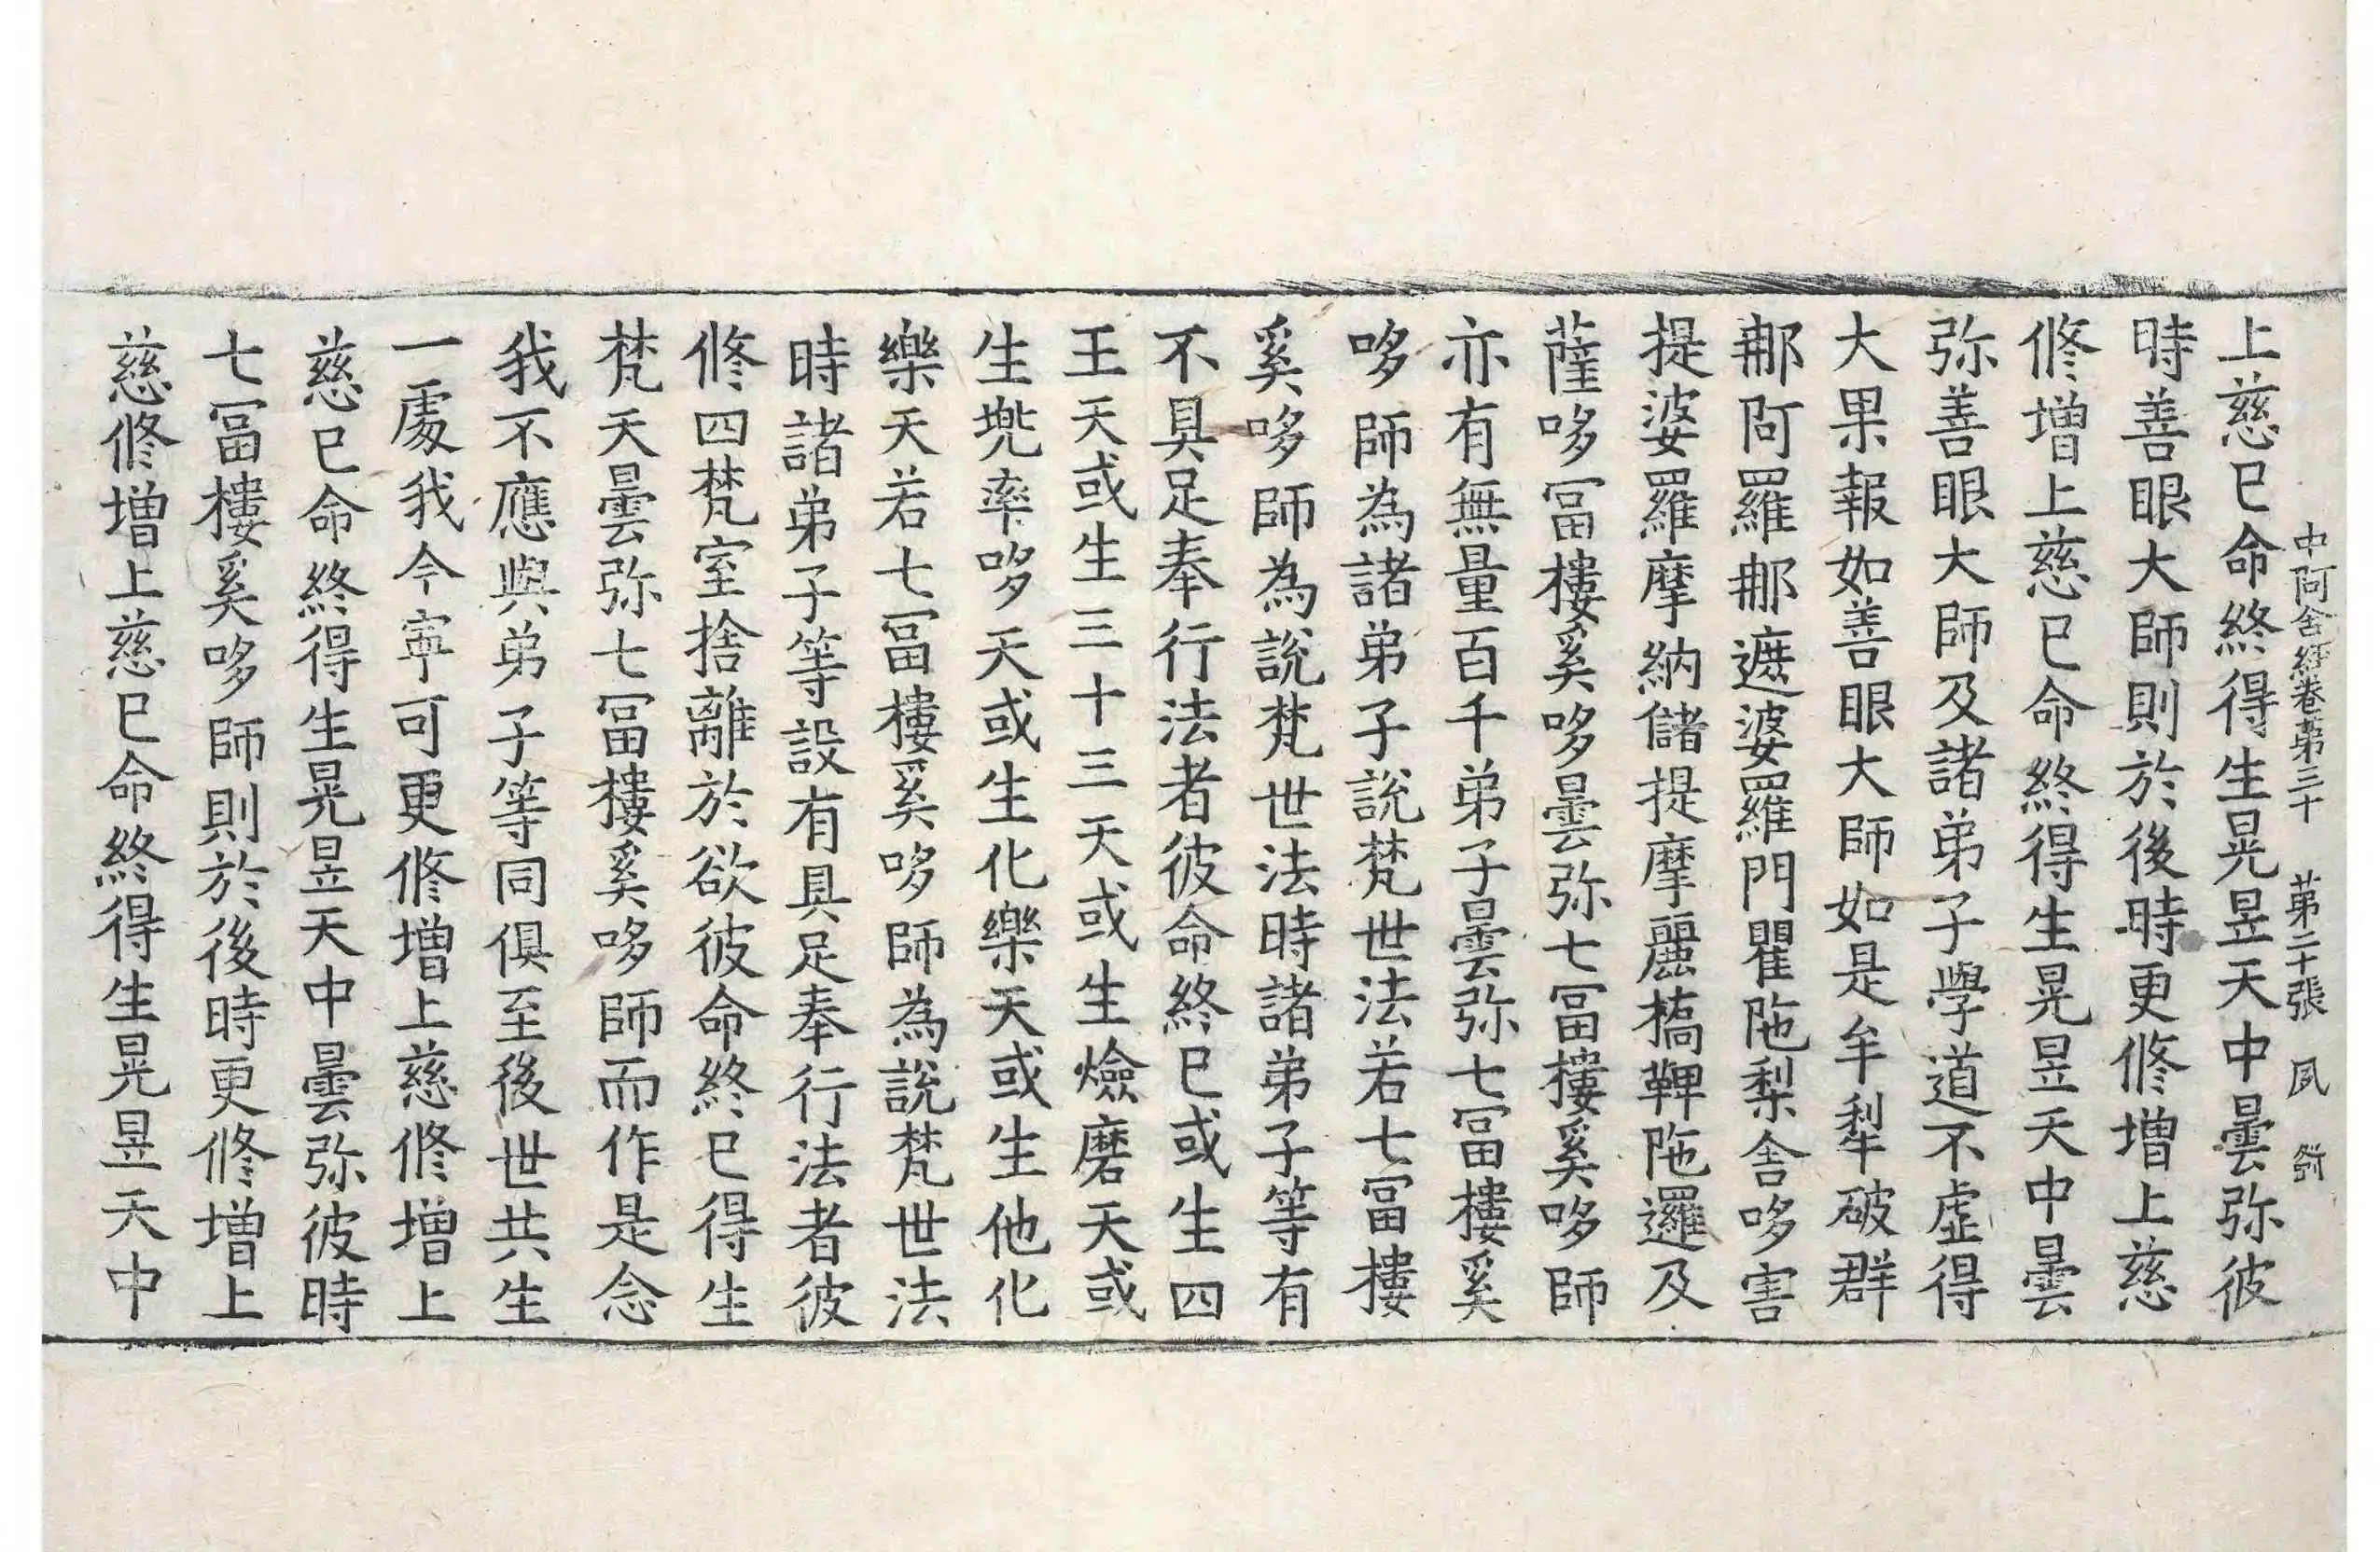 中阿含經卷第三十　第二十張　夙
上慈已命終得生晃昱天中曇弥彼
時善眼大師則於後時更修增上慈
修增上慈已命終得生晃昱天中曇
弥善眼大師及諸弟子學道不虛得
大果報如善眼大師如是牟犁破群
那阿羅那遮婆羅門瞿陁梨舍哆害
提婆羅摩納儲提摩麗橋鞞陁邏及
薩哆冨樓奚哆曇弥七冨樓奚哆師
亦有無量百千弟子曇弥七冨樓奚
哆師為諸弟子說梵世法若七冨樓
奚哆師為說梵世法時諸弟子等有
不具足奉行法者彼命終已或生四
王天或生三十三天或生爓磨天或
生兠率哆天或生化樂天或生他化
樂天若七冨樓奚哆師為說梵世法
時諸弟子等設有具足奉行法者彼
修四梵室捨離於欲彼命終已得生
梵天曇弥七冨樓奚哆師而作是念
我不應與弟子等同俱至後世共生
一處我今寧可更修增上慈修增上
慈已命終得生晃昱天中曇弥彼時
七冨樓奚哆師則於後時更修增上
慈修增上慈已命終得生晃昱天中